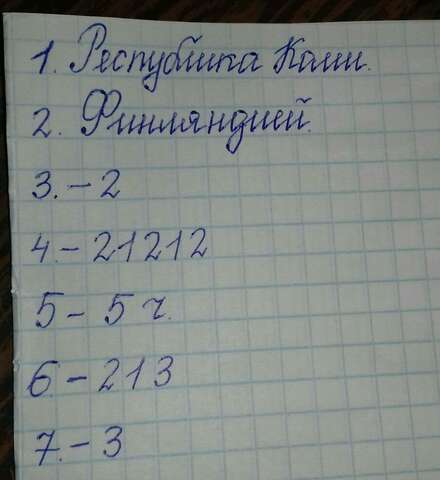 1. Республика Коми.
2. Финляндией.
3. - 2
4 - 21212
5 - 5 ч.
6. - 213
7. - 3